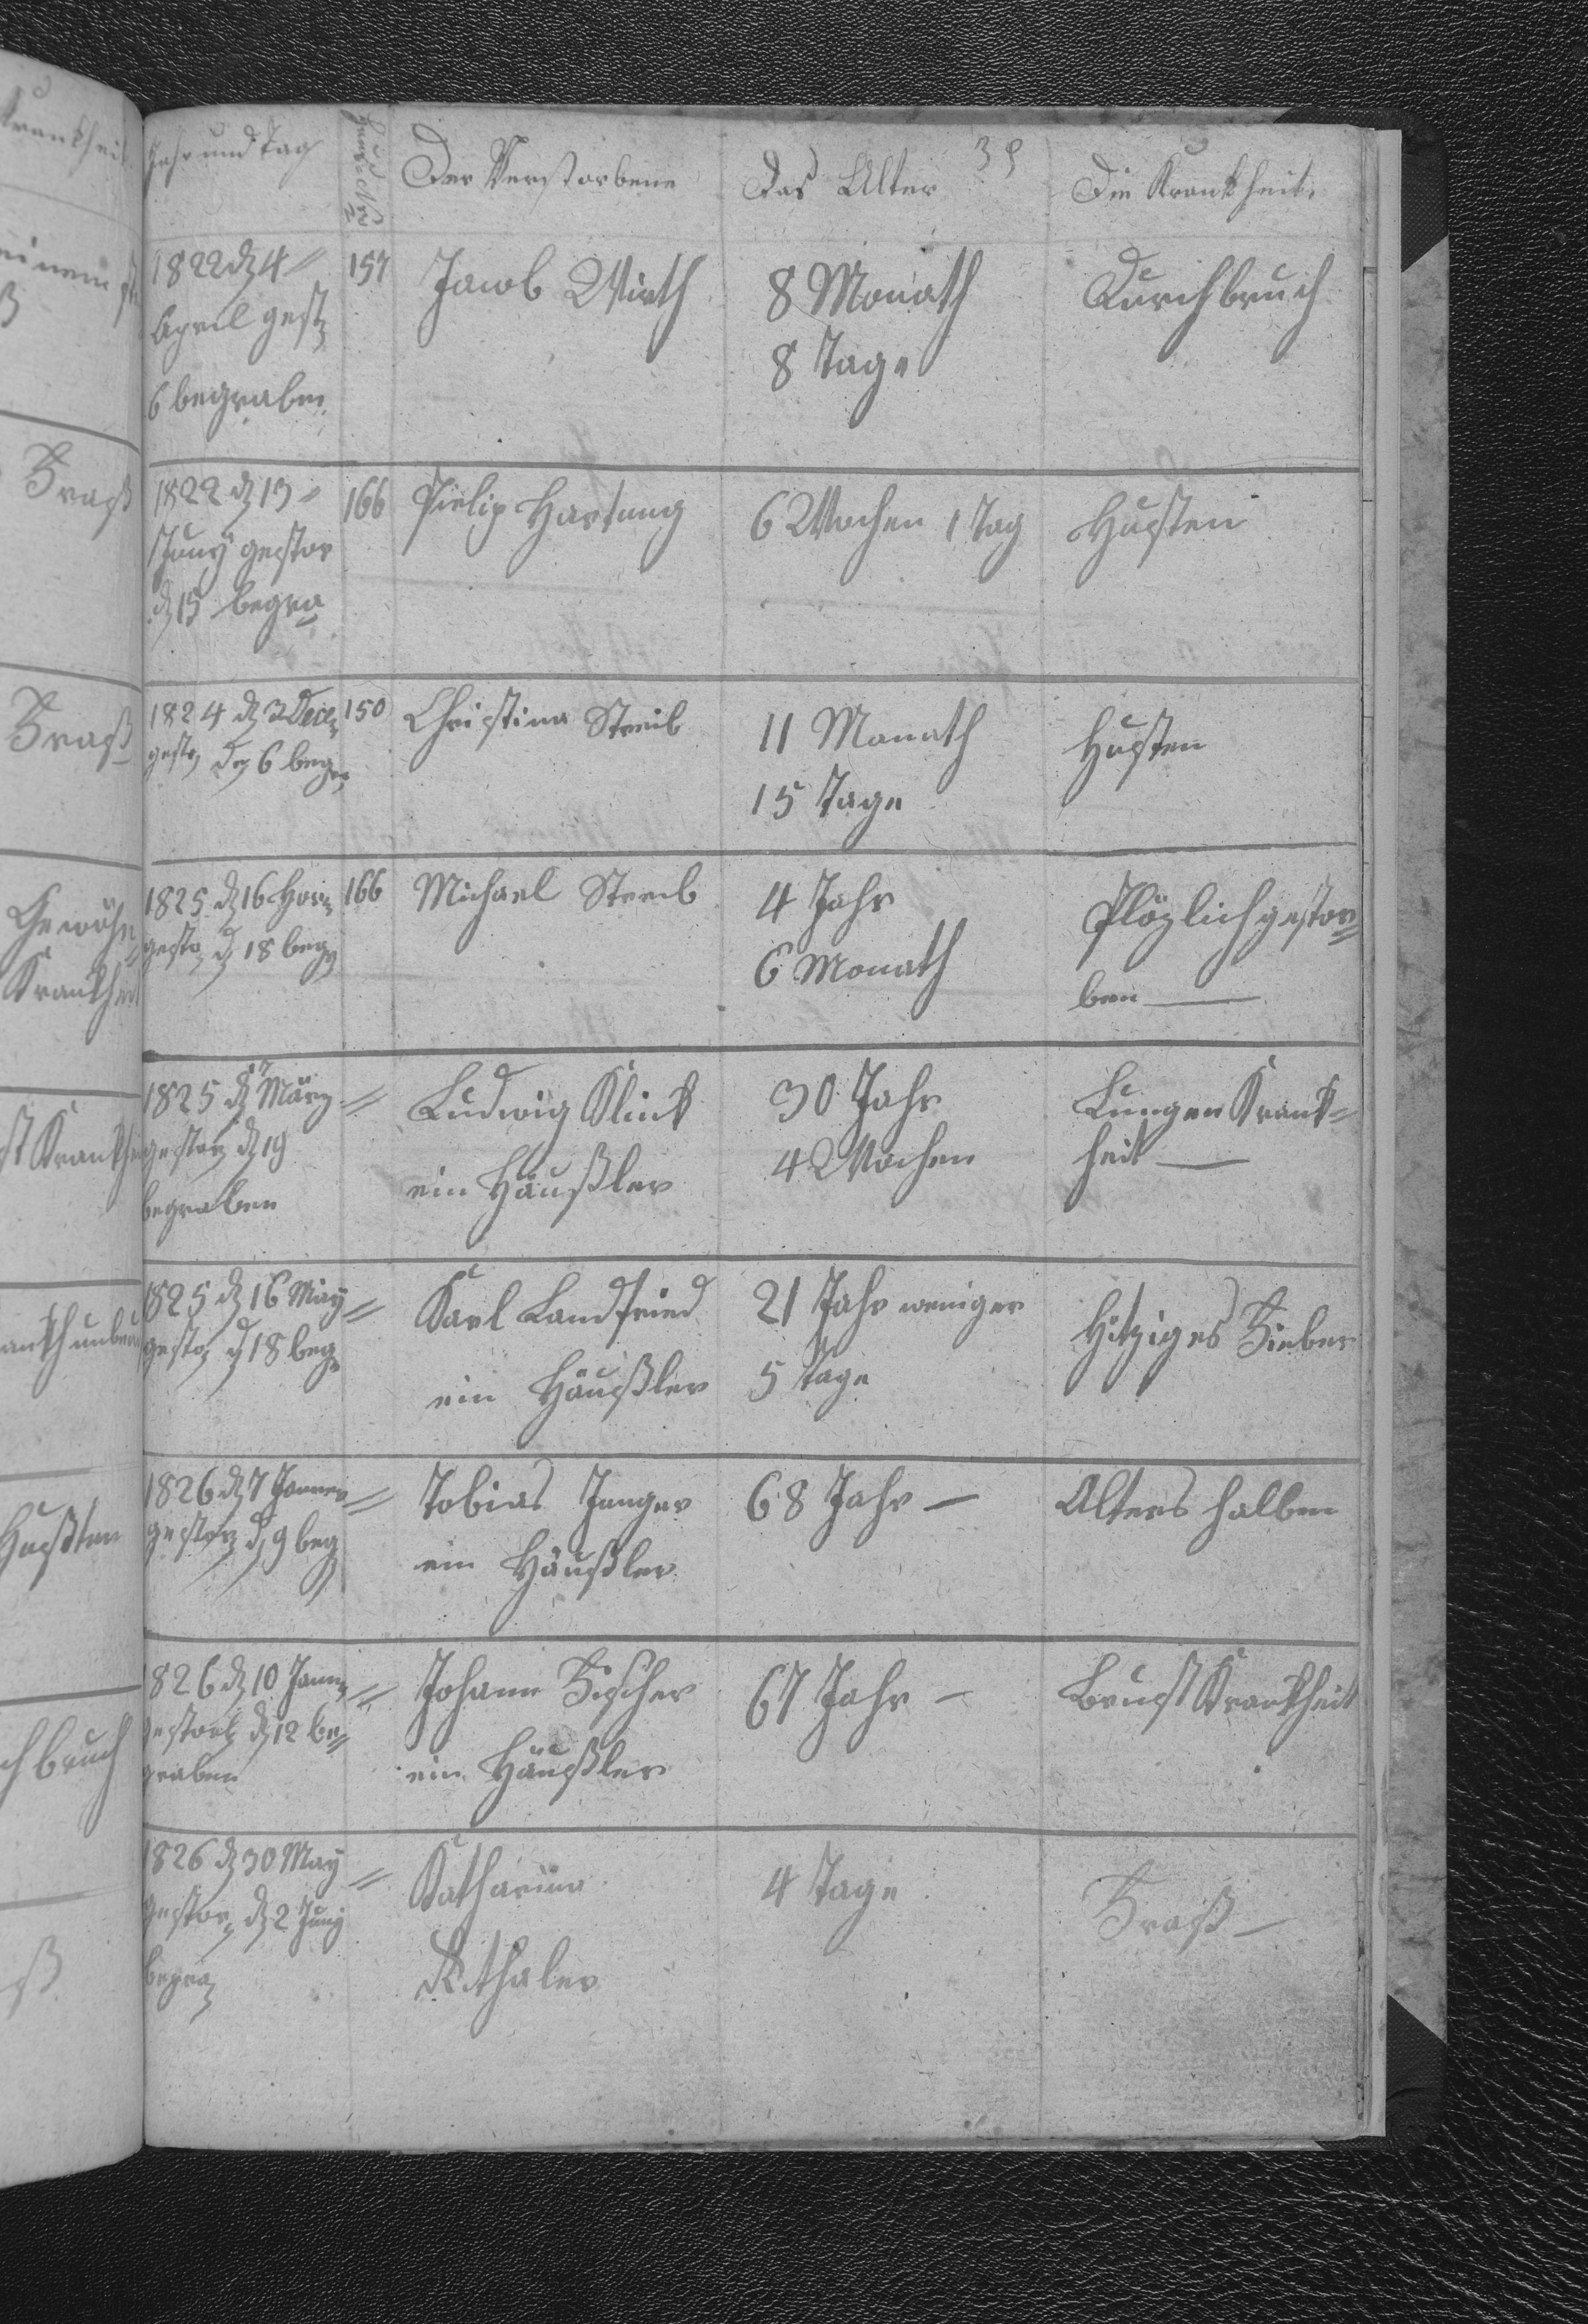 39
Jahr und Tag
Haus Nro
Der Verstorbene
Das Alter
Die Krankheit.
1822 dz 4
April gest
6 begraben
157
Jacob Wirth
8 Monath
8 Tage
Durchbruch
1822 dz 13
Juny gestor
dz 15 begra
166
Pielip Hartung
6 Wochen 1 Tag
Husten
1824 dz 3 Dece
gesto den 6 beg
150
Christina Streib
11 Monath
15 Tage
Husten
1825 dz 16 Hor
gesto dz 18 beg
166
Michael Streib
4 Jahr
6 Monath
Plözlich gestor=
ben —
1825 dz 17 März =
gestor dz 19
begraben
Ludwig Klink
ein Häußler
30 Jahr
4 Wochen
Lungen Krank=
heit —
1825 dz 16 May =
gesto dz 18 beg
Karl Landfried
ein Häußler
21 Jahr weniger
5 Tage
Hitziges Fieber
1826 dz 7 Janner =
gestor dz 9 beg
Tobias Junger
ein Häußler
68 Jahr —
Alters halben
1826 dz 10 Jann =
gestorb dz 12 be=
graben
Johann Fischer
ein Häußler
67 Jahr —
Brust Krankheit
1826 dz 30 May =
Gestor dz 2 Juny
begra
Katharina
4 Tage
Fraß —